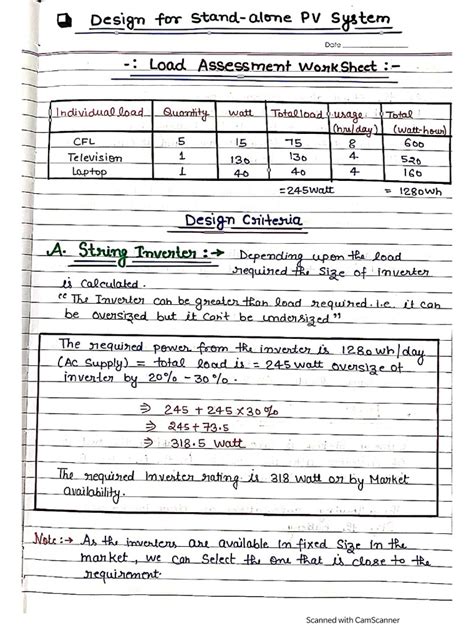 Design for Stand-alone PV System
Date
-: Load Assessment WorkSheet :-
Individual load Quantity watt Total load usage (hrs/day) Total (watt-hour)
CFL 5 15 75 8 600
Television 1 130 130 4 520
Laptop 1 40 40 4 160
=245watt = 1280wh
Design Criteria
A. String Inverter :→ Depending upon the load
required the Size of inverter
is calculated.
"The Inverter can be greater than load required. i.e. it can
be oversized but it Can't be undersized"
The required power from the inverter is 1280wh/day
(AC Supply) = total load is = 245 watt oversize of
inverter by 20% - 30%.
⇒ 245 + 245 × 30%
⇒ 245 + 73.5
⇒ 318.5 watt
The required Inverter rating is 318 Watt or by Market
availability.
Note :→ As the inverters are available in fixed Size in the
market, we can Select the one that is close to the
requirement.
Scanned with CamScanner